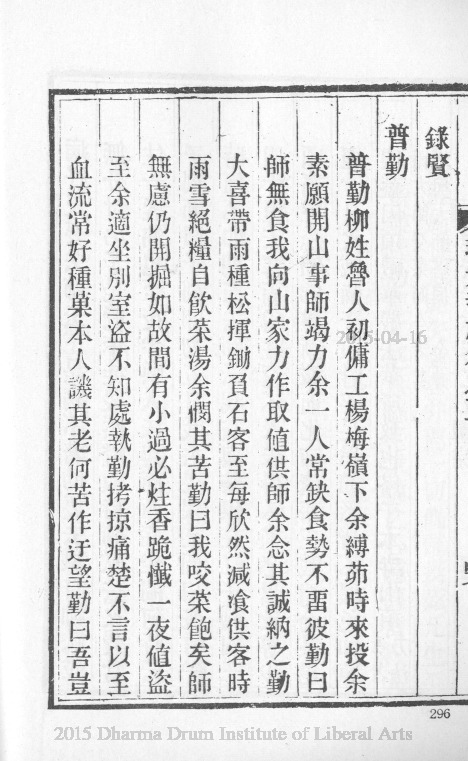 錄賢
普勤
普勤柳姓魯人初傭工楊梅嶺下余縛茆時來投余
素願開山事師竭力余一人常缺食勢不畱彼勤曰
師無食我向山家力作取值供師余念其誠納之勤
大喜帶雨種松揮鋤負石客至每欣然減飡供客時
雨雪絕糧自飲菜湯余憫其苦勤曰我咬菜飽矣師
無慮仍開掘如故間有小過必炷香跪懺一夜值盜
至余適坐別室盜不知處執勤拷掠痛楚不言以至
血流常好種菓本人譏其老何苦作迂望勤曰吾豈
296
2015-04-16
2015 Dharma Drum Institute of Liberal Arts